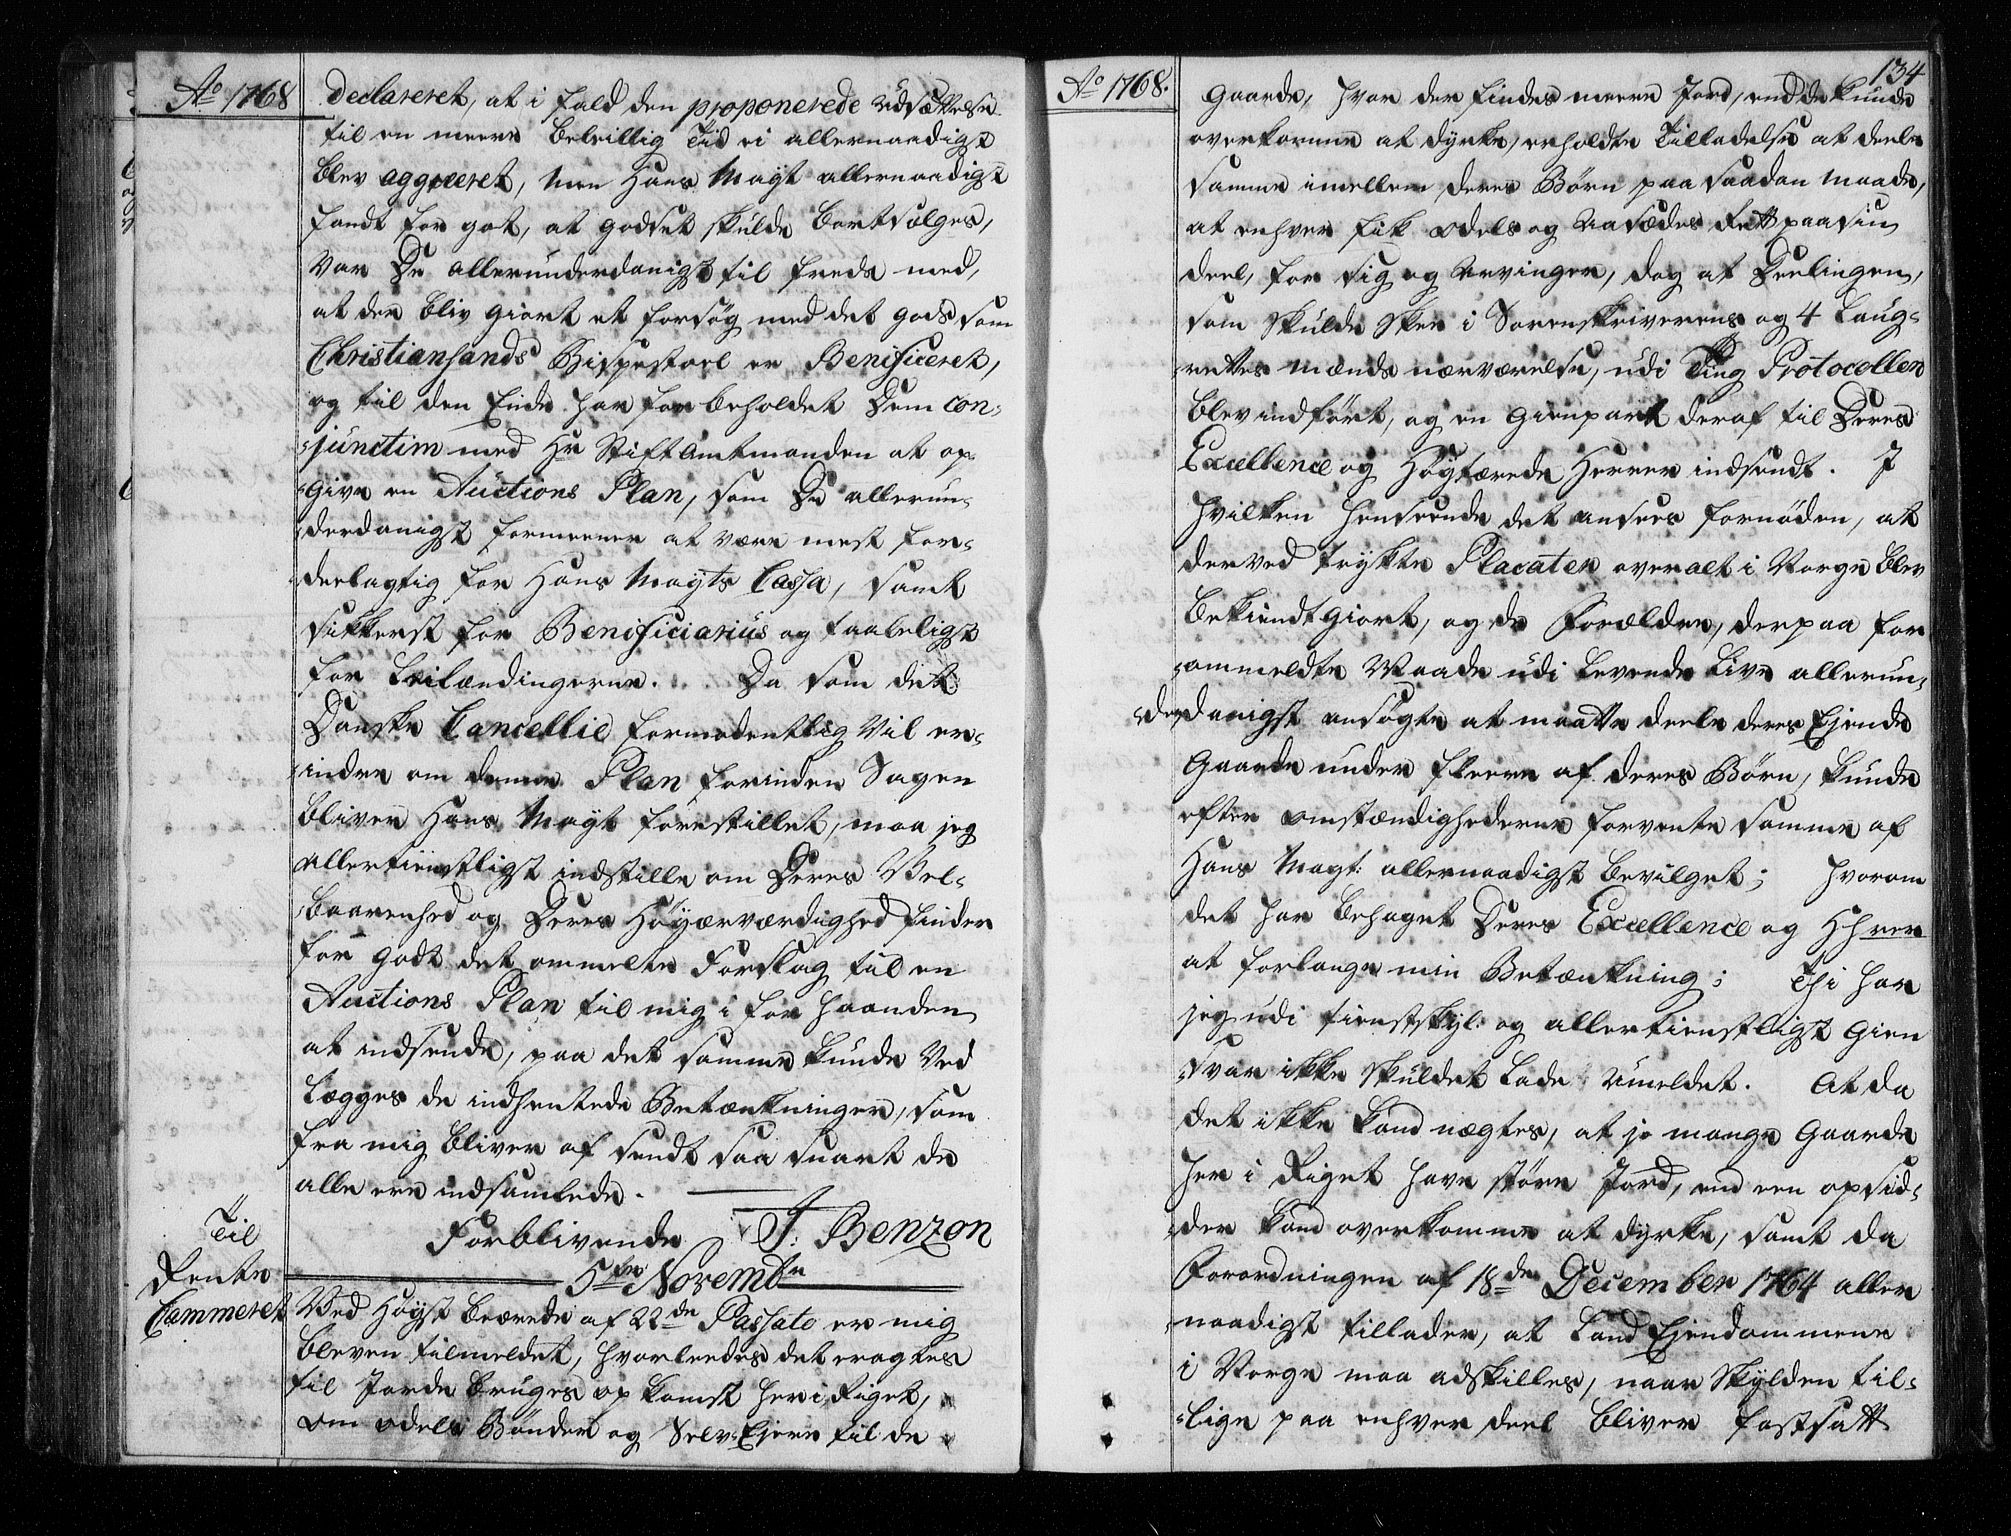 Ao 1768
declareret, at i fald den proponerede Udsættelse
til en meere beleilig Tid ei allernaadigst
blev aggreeret, men Hans Mayt allernaadigst
fandt for got, at godset skulde bortsælges,
var De allerunderdanigst til freds med,
at der bliv giort et forsøg med det gods som
Christiansands Bispestoel er Benificeret,
og til den Ende har forbeholdet Dem con-
junctim med Hr Stiftamtmanden at op-
give en Auctions Plan, som De allerun-
derdanigst formeener at være mest for-
deelagtig for Hans Mayts Cassa, samt
sikkerst for Benificiarius og taaleligst
for Leilændingerne. Da som det
Danske Cancellie formodentlig vil er-
indre om denne Plan forinden Sagen
bliver Hans Mayt forestillet, maa jeg
allertienstligst indstille om Deres Vel-
baarenhed og Deres Høyærværdighed finder
for godt det ommelte Forslag til en
Auctions Plan til mig i for haanden
at indsende, paa det samme kunde ved
lægges de indhentede Betænkninger, som
fra mig bliver af sendt saa snart de
alle ere indsamlede.
Forblivende J. Benzon
5te Novembr
Til
Rente
Cammeret
Ved Høyst beærede af 22de Passato er mig
bleven tilmeldet, hvorleedes det eragtes
til Jorde bruges op komst her i Riget,
om odels Bønder og Selv-Ejere til de
Ao 1768.
134
gaarde, hvor der findes meere Jord, end de kunde
overkomme at dyrke, erholdte Tilladelse at deele
samme imellem deres Børn paa saadan maade,
at enhver fik odels og Aasædes Rett paa sin
deel, for sig og Arvinger, dog at Deelingen,
som skulde skee i Sorenskriverens og 4 Laug-
rettes mænds nærværelse, udi Ting Protocollen
blev indført, og en gienpart deraf til Deres
Excellence og Høytærede Herrer indsendt. I
hvilken henseende det ansees fornøden, at
derved trykte Placater over alt i Norge blev
bekiendtgiort, og de Forældre, derpaa for
ommeldte Maade udi levende Live allerun-
derdanigst ansøgte at maatte deele deres Ejende
Gaarde under fleere af deres Børn, kunde
efter omstændighederne forvente samme af
Hans Mayt: allernaadigst bevilget; hvorom
det har behaget Deres Excellence og Hhrer
at forlange min Betænkning; Thi har
jeg udi tienstskyl: og allertienstligst Gien
svar ikke skuldet lade Umeldet. At da
det ikke kand nægtes, at jo mange Gaarde
her i Riget have større Jord, end een opsid-
der kand overkomme at dyrke, samt da
Forordningen af 18de December 1764 aller
naadigst tillader, at Land Ejendommene
i Norge maa adskilles, naar Skylden til-
lige paa enhver deel bliver fastsatt